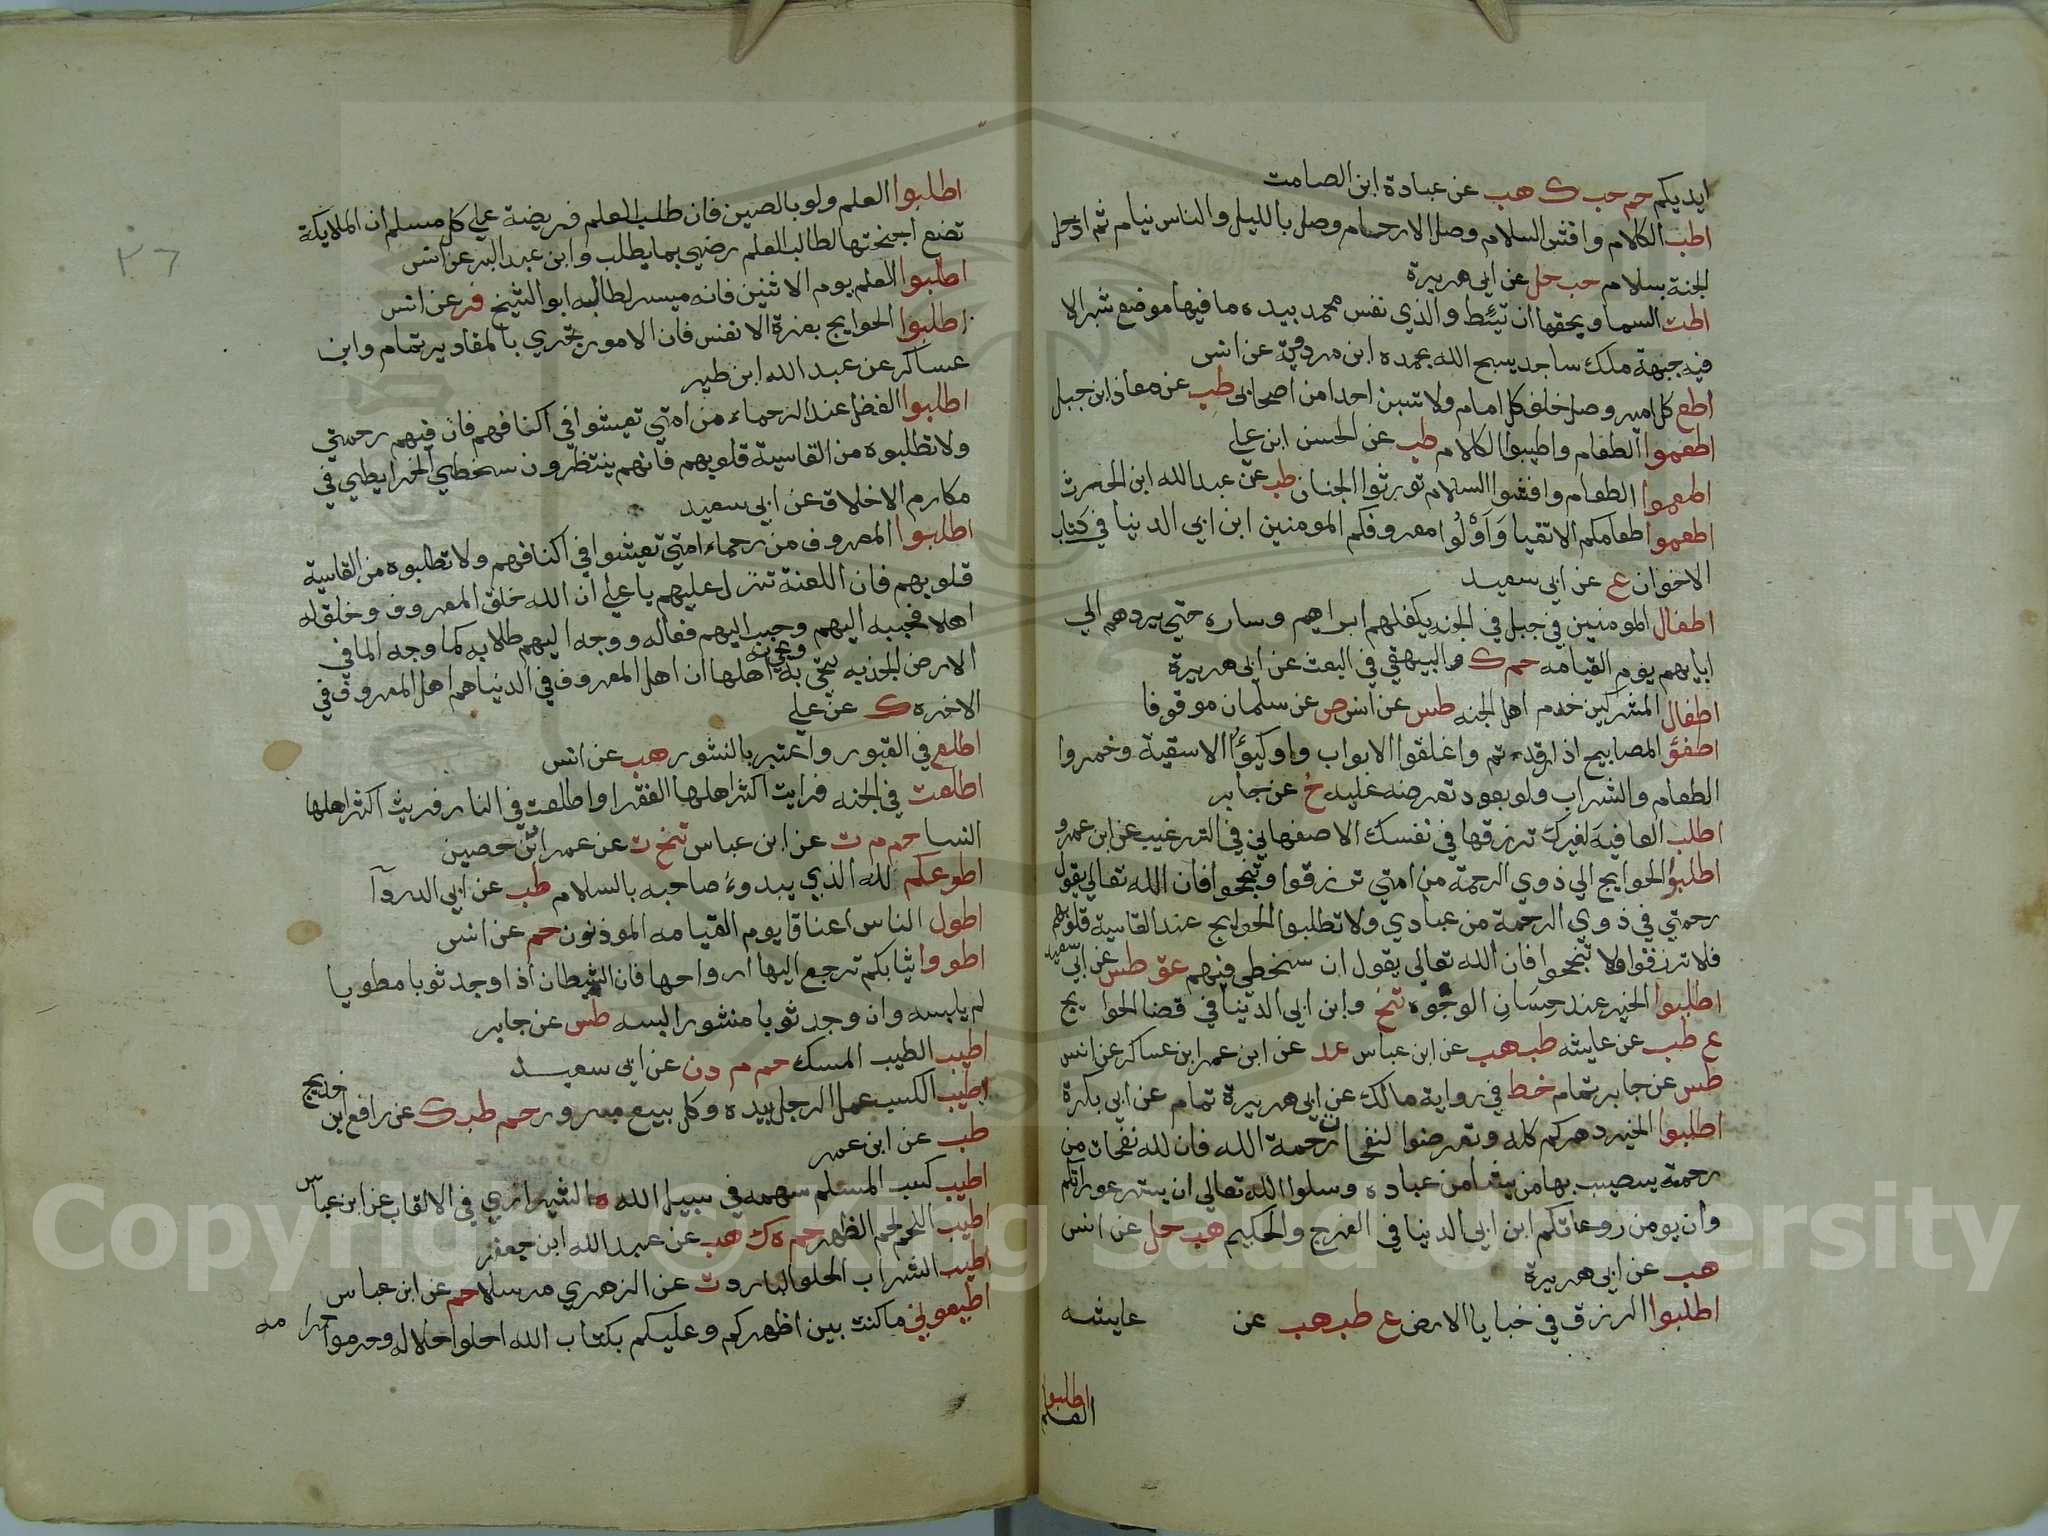 ايديكم حم حب ك هب عن عبادة ابن الصامت
اطب الكلام وافش السلام وصل الارحام وصل بالليل والناس نيام ثم ادخل
الجنة بسلام حب حل عن ابي هريرة
اطت السما ويحقها ان تئط والذي نفس محمد بيده ما فيها موضع شبر الا
فيه جبهة ملك ساجد يسبح الله بحمده ابن مردوية عن انس
اطع كل امير وصل خلف كل امام ولا تسبن احدا من اصحابي طب عن معاذ ابن جبل
اطعموا الطعام واطيبوا الكلام طب عن الحسن ابن علي
اطعموا الطعام وافشوا السلام تورثوا الجنان طب عن عبد الله ابن الحرث
اطعموا طعامكم الاتقيا وَاَوْلُوا معروفكم المومنين ابن ابي الدنيا في كتاب
الاخوان ع عن ابي سعيد
اطفال المومنين في جبل في الجنه يكفلهم ابراهيم وساره حتي يردهم الي
ابايهم يوم القيامه حم ك والبيهقي في البعث عن ابي هريرة
اطفال المشركين خدم اهل الجنه طس عن انس ص عن سلمان موقوفا
اطفؤ المصابيح اذا رقدتم واغلقوا الابواب واوكيؤا الاسقية وخمروا
الطعام والشراب ولو بعود تعرضه عليه خ عن جابر
اطلب العافية لغيرك ترزقها في نفسك الاصفهاني في الترغيب عن ابن عمرو
اطلبوا الحوايج الي ذوي الرحمة من امتي ترزقوا وتنجحوا فان الله تعالي يقول
رحمتي في ذوي الرحمة من عبادي ولا تطلبوا الحوايج عند القاسية قلوبهم
فلا ترزقوا ولا تنجحوا فان الله تعالي يقول ان سخطي فيهم عق طس عن ابي سعيد
اطلبوا الخير عند حسان الوجوه تخ وابن ابي الدنيا في قضا الحوايج
ع طب عن عايشه طب هب عن ابن عباس عد عن ابن عمر ابن عساكر عن انس
طس عن جابر تمام خط في رواية مالك عن ابي هريرة تمام عن ابي بكرة
اطلبوا الخير دهركم كله وتعرضوا لنفحات رحمة الله فان لله نفحات من
رحمة يصيب بها من يشا من عباده وسلوا الله تعالي ان يستر عوراتكم
وان يومن روعاتكم ابن ابي الدنيا في الفرج والحكيم هب حل عن انس
هب عن ابي هريرة
اطلبوا الرزق في خبايا الارض ع طب هب عن عايشه
اطلبوا
العلم
٢٦
اطلبوا العلم ولو بالصين فان طلب العلم فريضة علي كل مسلم ان الملايكة
تضع اجنحتها لطالب العلم رضي بما يطلب وابن عبد البر عن انس
اطلبوا العلم يوم الاثنين فانه ميسر لطالبه ابو الشيخ فر عن انس
اطلبوا الحوايج بعزة الانفس فان الامور تجري بالمقادير تمام وابن
عساكر عن عبد الله ابن
اطلبوا الفضل عند الرحماء من امتي تعيشوا في اكنافهم فان فيهم رحمتي
ولا تطلبوه من القاسية قلوبهم فانهم ينتظرون سخطي الخرايطي في
مكارم الاخلاق عن ابي سعيد
اطلبوا المعروف من رحماء امتي تعيشوا في اكنافهم ولا تطلبوه من القاسية
قلوبهم فان اللعنة تنزل عليهم يا علي ان الله خلق المعروف وخلق له
اهلا فحببه اليهم وحبب اليهم فعاله ووجه اليهم طلابه كما وجه الما في
الارض الجدبه لتحي به اهلها ان اهل المعروف في الدنيا هم اهل المعروف في
الاخره ك عن علي
اطلع في القبور واعتبر بالنشور هب عن انس
اطلعت في الجنه فرايت اكثر اهلها الفقرا واطلعت في النار فريث اكثر اهلها
النسا حم م ت عن ابن عباس تخ ت عن عمران ابن حصين
اطوعكم لله الذي يبدوء صاحبه بالسلام طب عن ابي الدردآ
اطول الناس اعناقا يوم القيامه الموذنون حم عن انس
اطووا ثيابكم ترجع اليها ارواحها فان الشيطان اذا وجد ثوبا مطويا
لم يلبسه وان وجد ثوبا منشورا لبسه طس عن جابر
اطيب الطيب المسك حم م د ن عن ابي سعيد
اطيب الكسب عمل الرجل بيده وكل بيع مبرور حم طب ك عن رافع ابن خديج
طب عن ابن عمر
اطيب كسب المسلم سهمه في سبيل الله الشيرازي في الالقاب عن ابن عباس
اطيب اللحم لحم الظهر حم ه ك هب عن عبد الله ابن جعفر
اطيب الشراب الحلو البارد ت عن الزهري مرسلا حم عن ابن عباس
اطيعوني ما كنت بين اظهركم وعليكم بكتاب الله احلوا حلاله وحرموا حرامه
Copyright © King Saud University